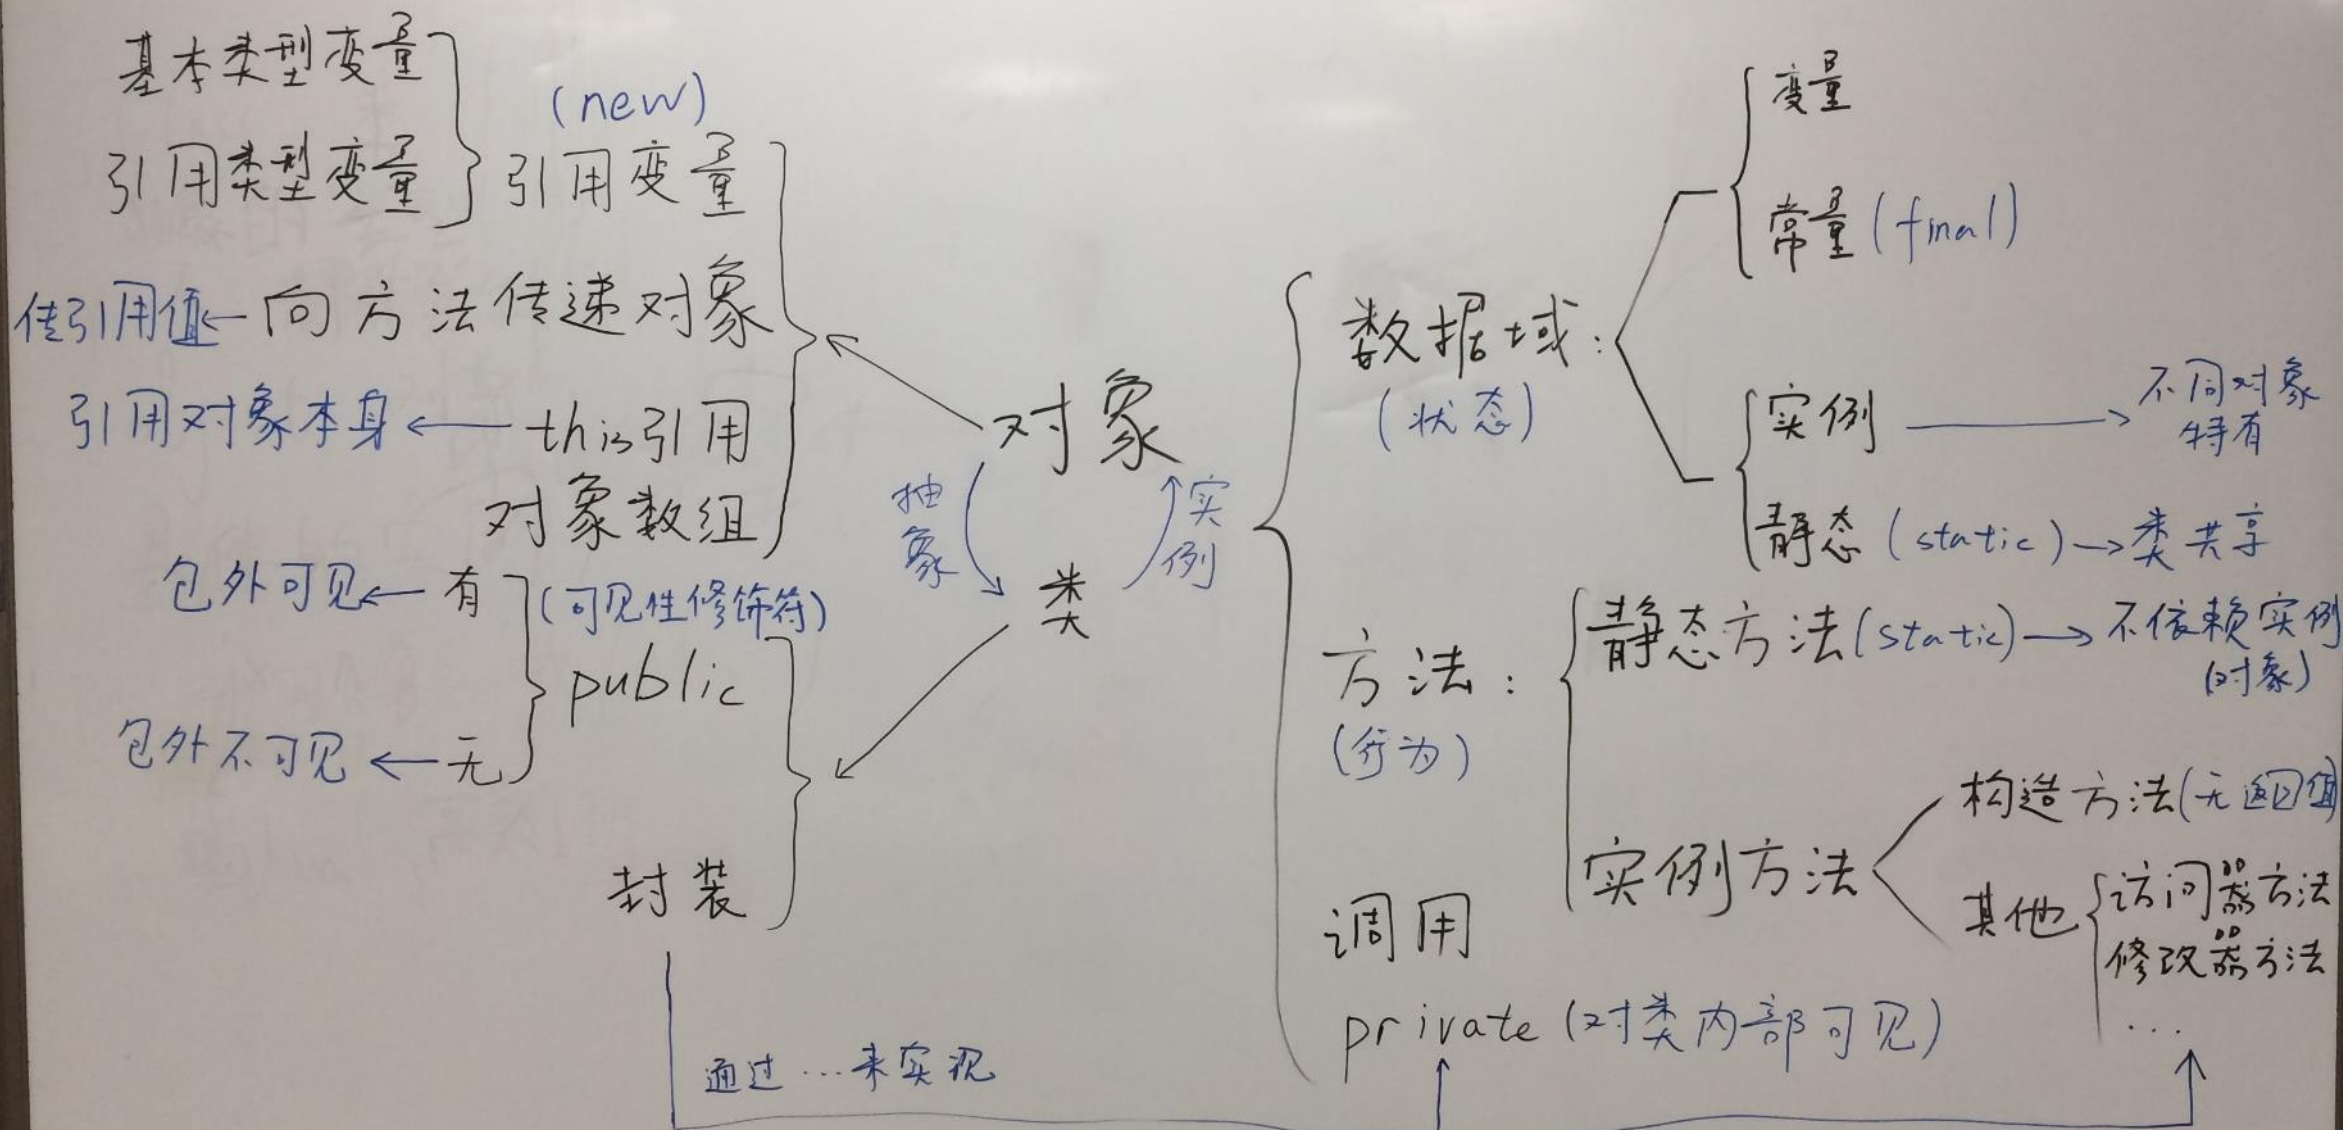 基本类型变量
引用类型变量
(new)
引用变量
传引用值←向方法传递对象
引用对象本身←this引用
对象数组
包外可见←有
(可见性修饰符)
public
包外不可见←无
封装
通过…来实现
对象
抽象
实例
类
数据域:
(状态)
变量
常量(final)
实例→不同对象
特有
静态(static)→类共享
方法:
(行为)
静态方法(static)→不依赖实例
(对象)
实例方法
构造方法(无返回值)
其他
访问器方法
修改器方法
...
调用
private(对类内部可见)